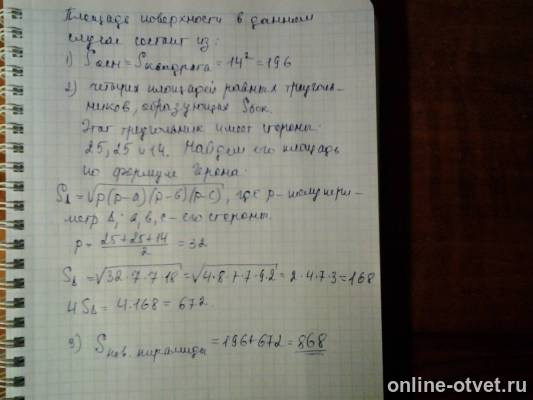 Площадь поверхности в данном
случае состоит из:
1) Sосн = Sквадрата = 14² = 196
2) четырёх площадей равных треуголь-
ников, образующих Sбок.
Этот треугольник имеет стороны:
25, 25 и 14. Найдем его площадь
по формуле Герона:
S∆ = √p(p-a)(p-b)(p-c), где p - полупери-
метр ∆; a, b, c - его стороны.
p = (25+25+14)/2 = 32
S∆ = √32·7·7·18 = √4·8·7·7·9·2 = 2·4·7·3 = 168
4S∆ = 4·168 = 672
3) Sпов. пирамиды = 196 + 672 = 868
online-otvet.ru